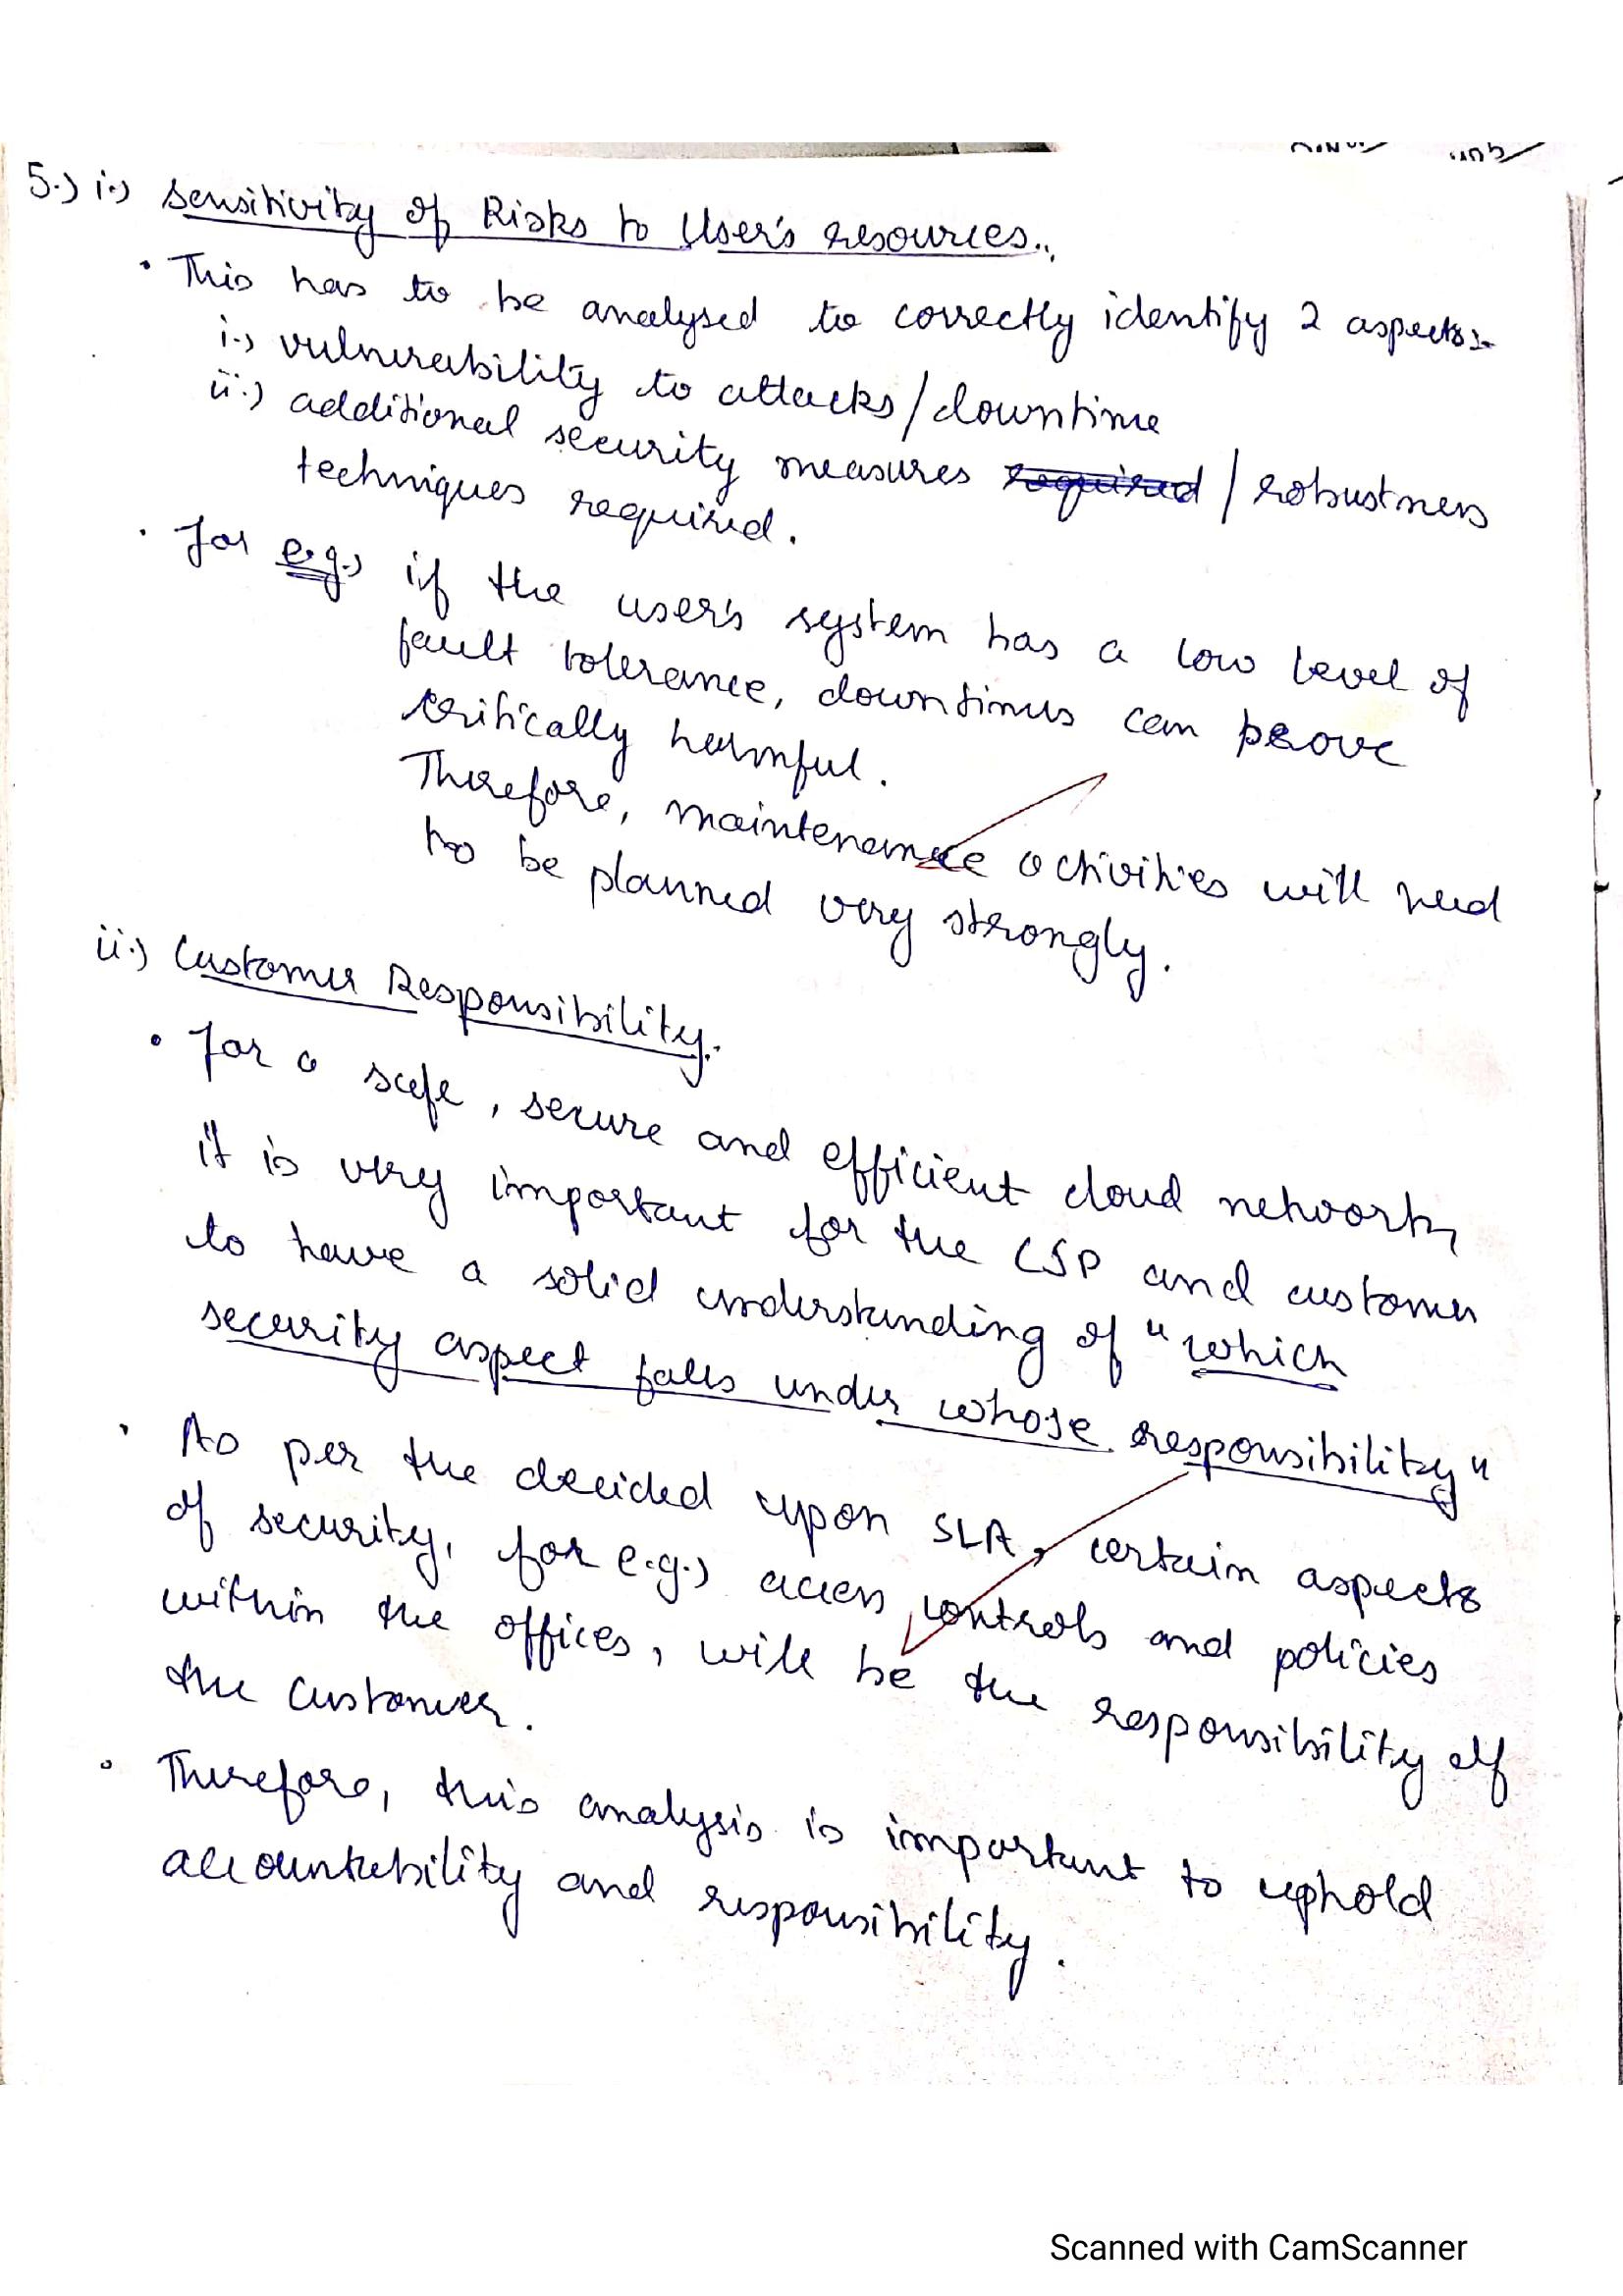 5.) i.) Sensitivity of Risks to User's resources..
• This has to be analysed to correctly identify 2 aspects:-
i.) vulnerability to attacks/downtime
ii.) additional security measures required / robustness
techniques required.
• for e.g.) if the user's system has a low level of
fault tolerance, downtimes can prove
critically harmful.
Therefore, maintenance activities will need
to be planned very strongly.
ii.) Customer Responsibility.
• for a safe, secure and efficient cloud network,
it is very important for the CSP and customer
to have a solid understanding of "which
security aspect falls under whose responsibility"
• As per the decided upon SLA, certain aspects
of security, for e.g.) access controls and policies
within the offices, will be the responsibility of
the customer.
• Therefore, this analysis is important to uphold
accountability and responsibility.
Scanned with CamScanner